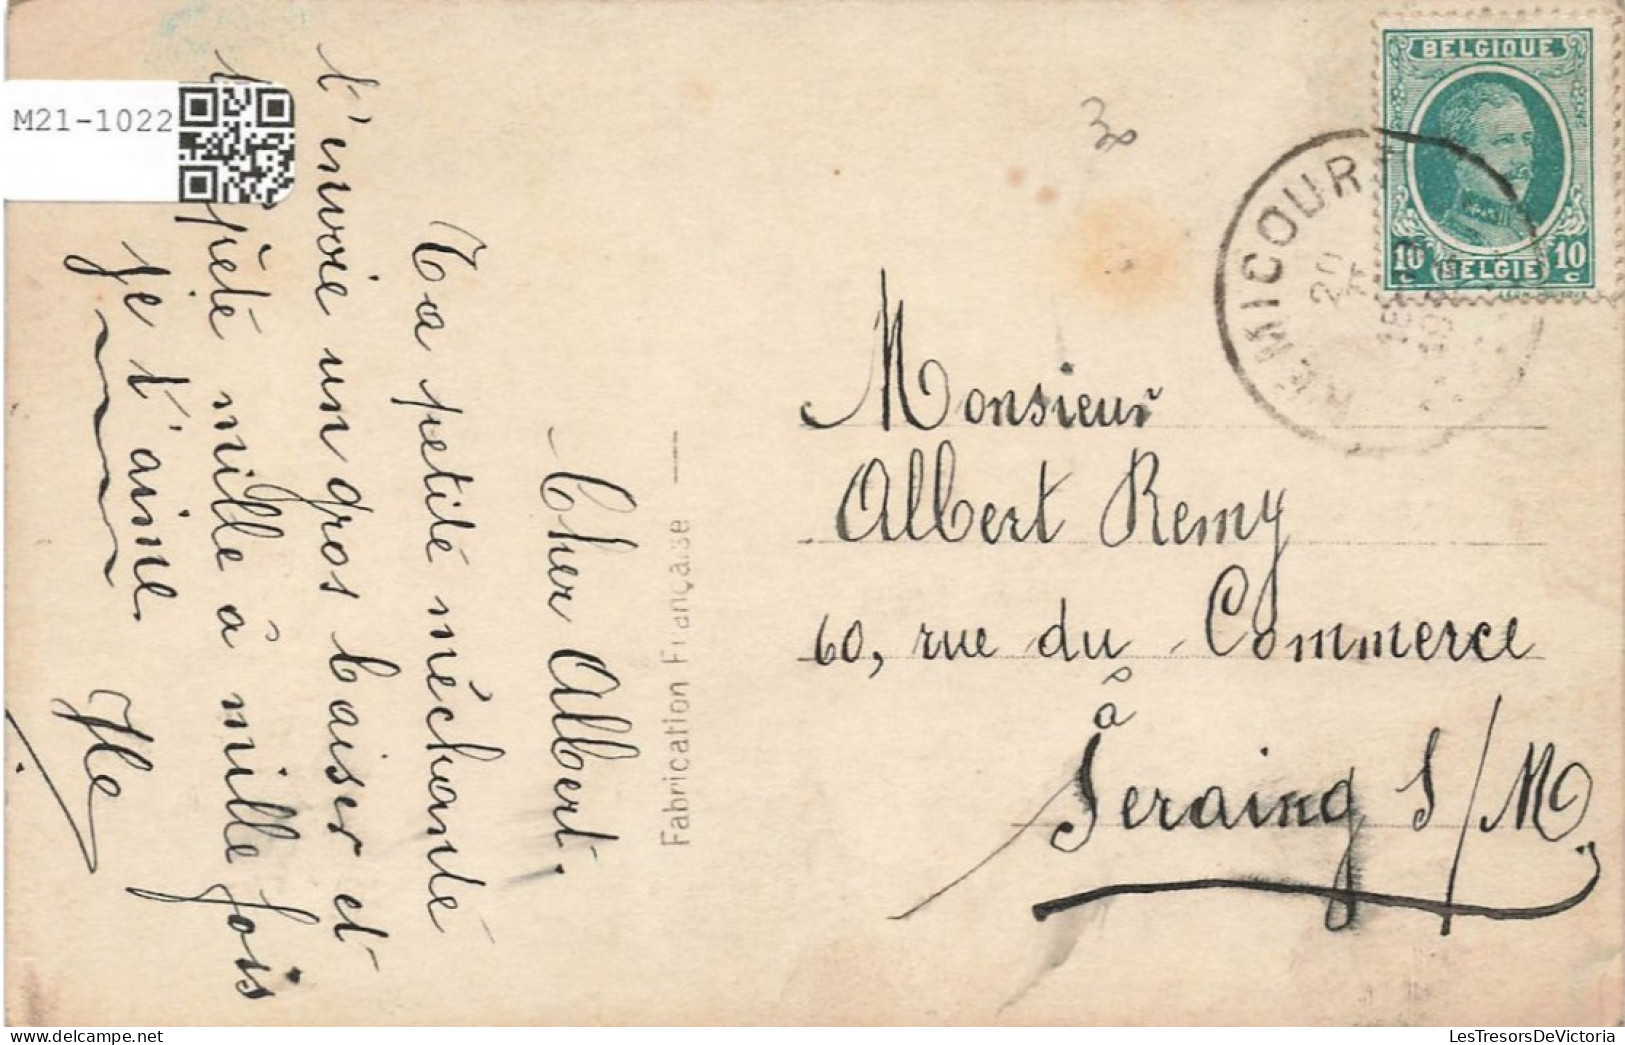 M21-1022
Cher Albert.
Ta petite méchante
t'envoie un gros baiser et
pète mille à mille fois
je t'aime
Fabrication Française
BELGIQUE
10 10
c c
BELGIE
REMICOURT
20
Monsieur
Albert Remy
60, rue du Commerce
à
Seraing S/M
LesTresorsDeVictoria.com